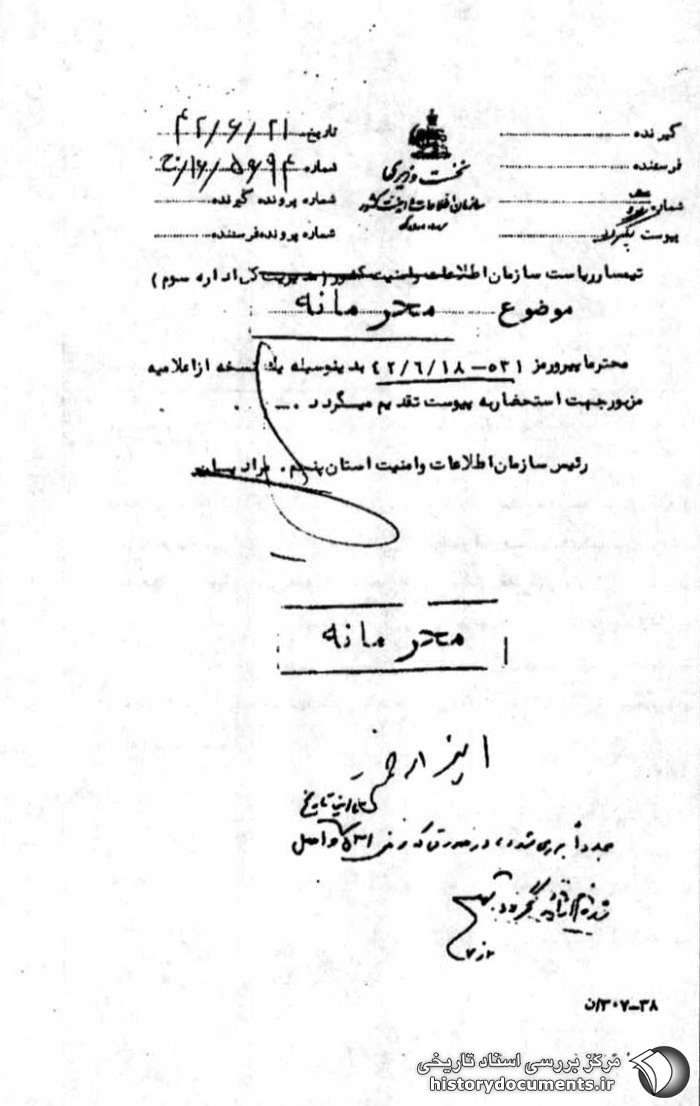 گیرنده
فرستنده
شماره
پیوست
نخست وزیری
سازمان اطلاعات و امنیت کشور
س.ا.و.ا.ک
تاریخ ۴۲/۶/۲۱
شماره
شماره پرونده گیرنده
شماره پرونده فرستنده
تیمسار ریاست سازمان اطلاعات و امنیت کشور (مدیریت کل اداره سوم)
موضوع
محرمانه
محترما پیرو رمز ۵۳۱-۴۲/۶/۱۸ بدینوسیله یک نسخه از اعلامیه
مزبور جهت استحضار به پیوست تقدیم میگردد .
رئیس سازمان اطلاعات و امنیت استان پنجم.
محرمانه
تاریخ
مجدداً بررسی شود، در صورتی که رمز ۵۳۱ واصل
۳۰۷-۳۸/ن
مرکز بررسی اسناد تاریخی
historydocuments.ir